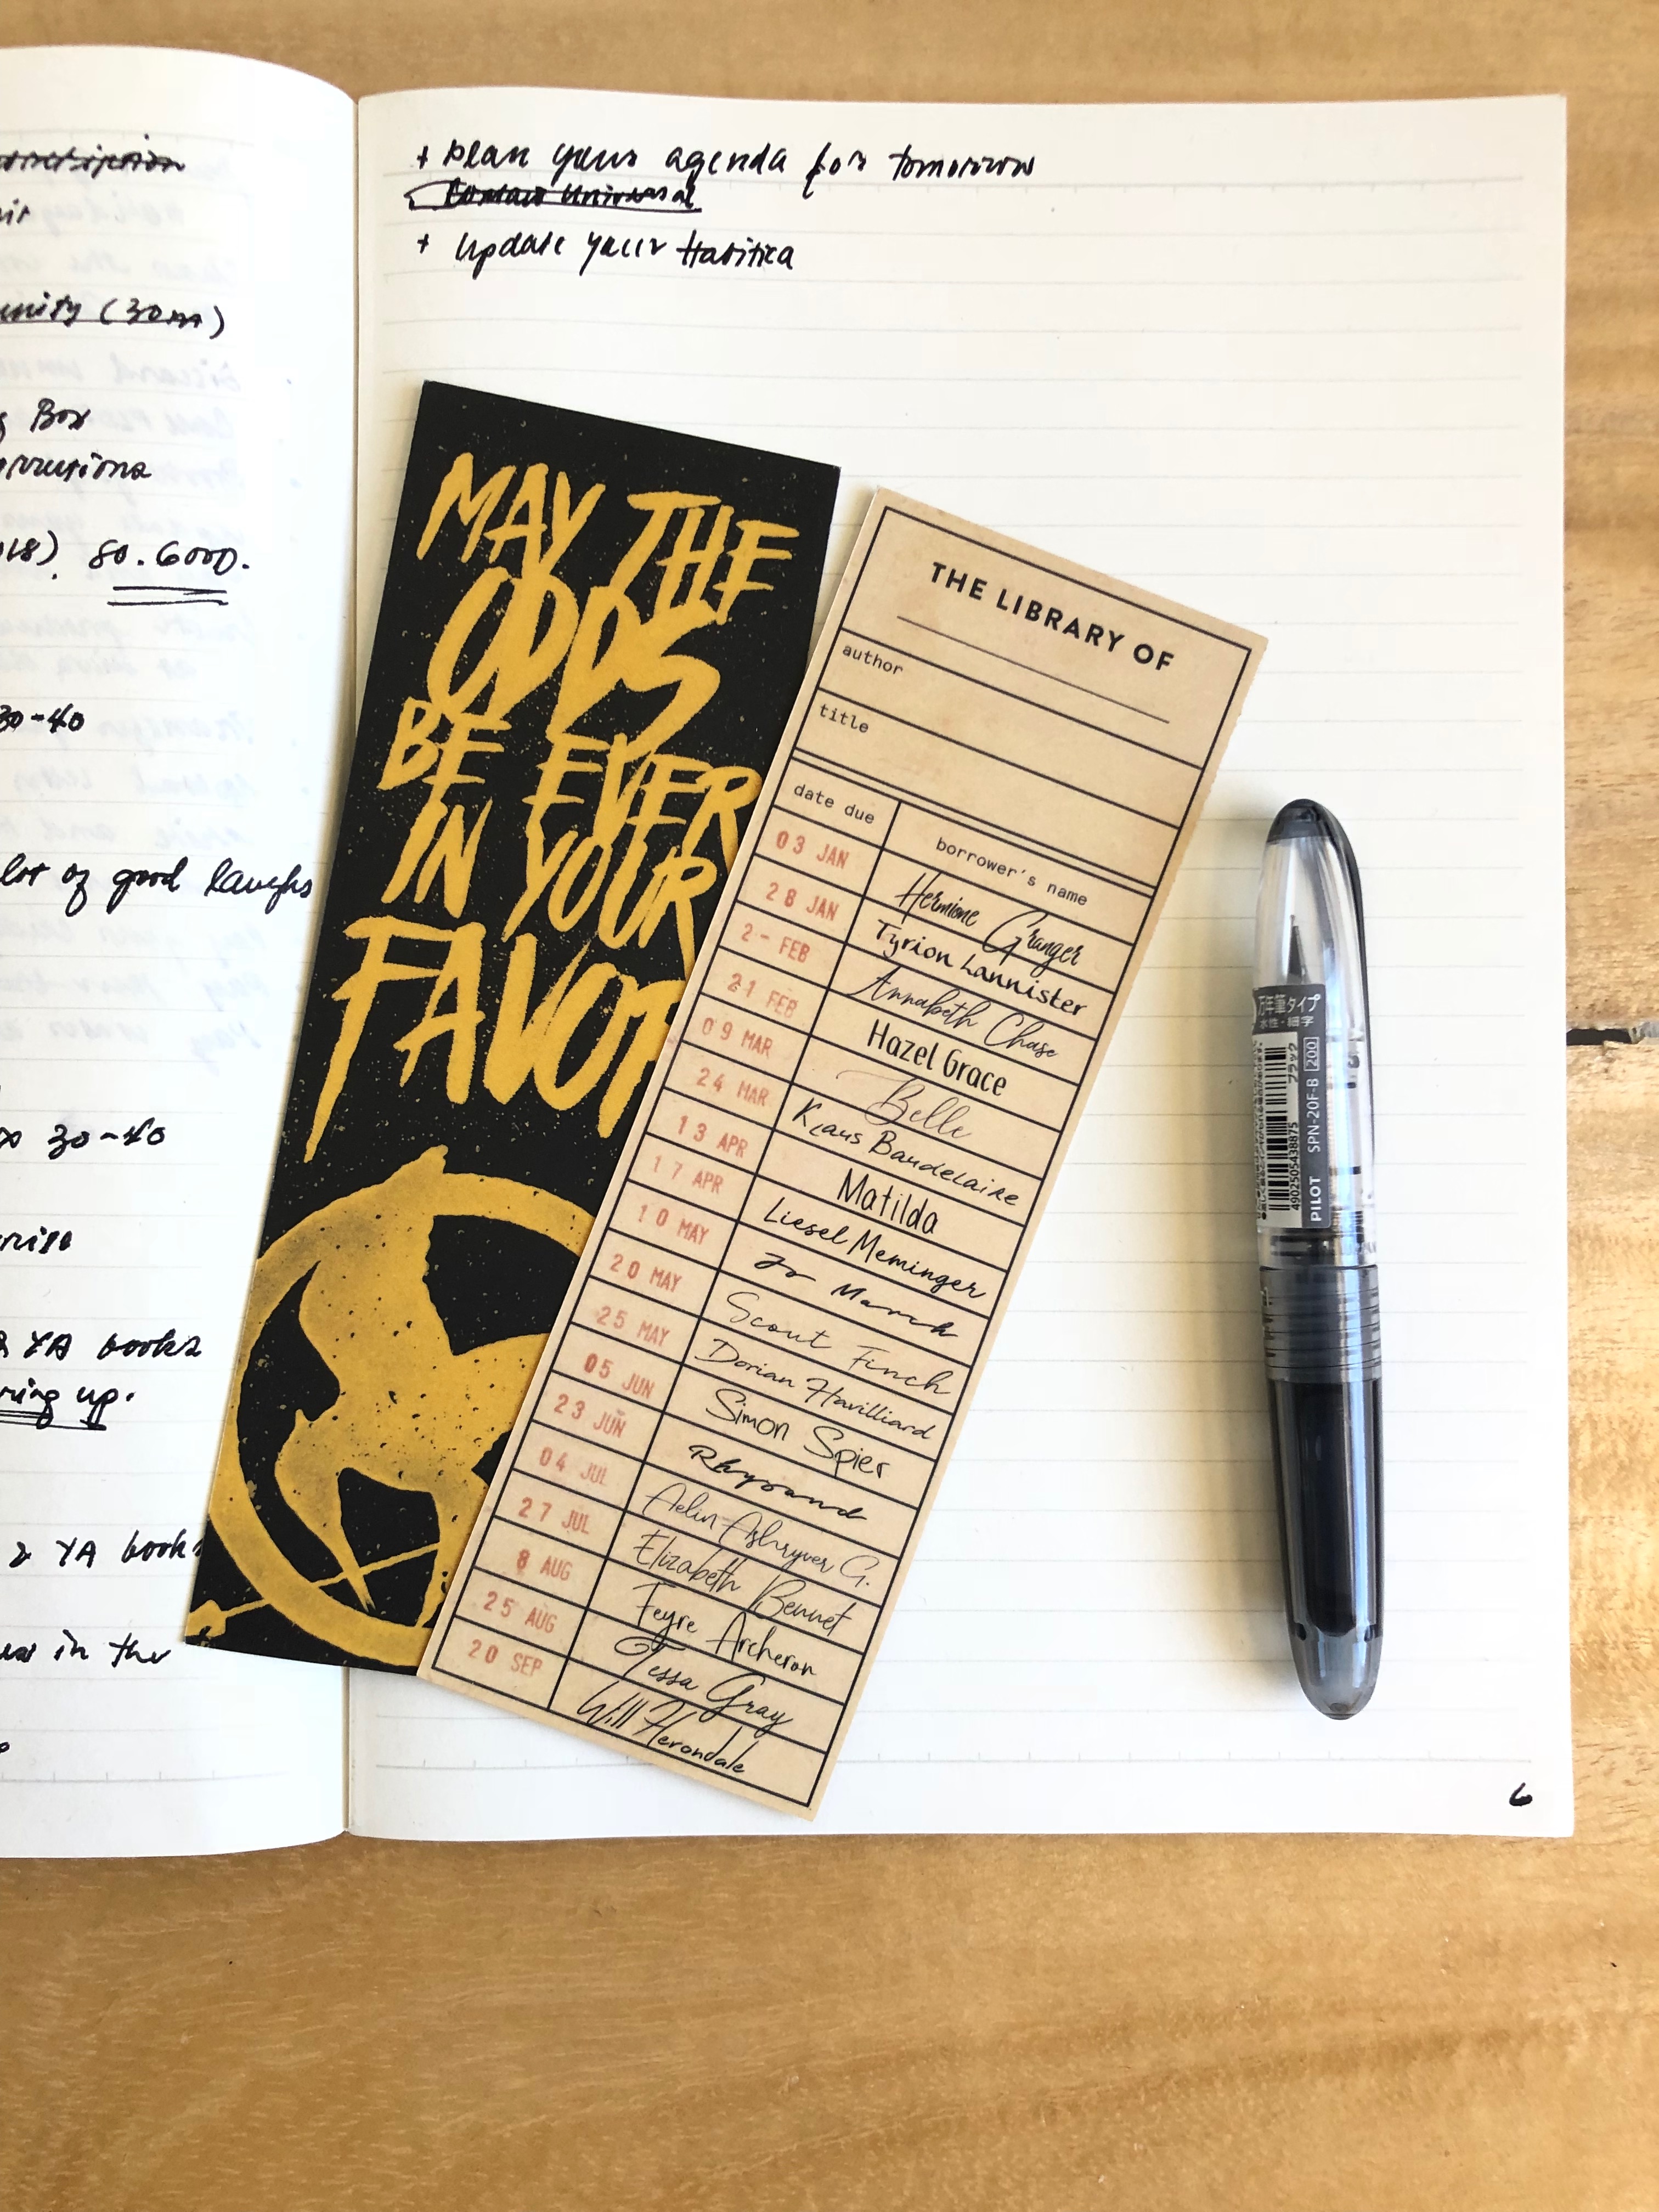 (30m)
Box
80.6000.
30-40
lot of good laughs
30-40
YA books
up.
2 YA books
in the
+ plan your agenda for tomorrow
+ update your Habitica
MAY THE
ODDS
BE EVER
IN YOUR
FAVO
THE LIBRARY OF
author
title
date due borrower's name
03 JAN Hermione Granger
28 JAN Tyrion Lannister
2- FEB Annabeth Chase
21 FEB Hazel Grace
09 MAR Belle
24 MAR Klaus Baudelaire
13 APR Matilda
17 APR Liesel Meminger
10 MAY Jo March
20 MAY Scout Finch
25 MAY Dorian Havilliard
05 JUN Simon Spier
23 JUN Rhysand
04 JUL Aelin Ashryver G.
27 JUL Elizabeth Bennet
8 AUG Feyre Archeron
25 AUG Tessa Gray
20 SEP Will Herondale
万年筆タイプ
水性・細字
ブラック
4902505438875
PILOT SPN-20F-B 200
6